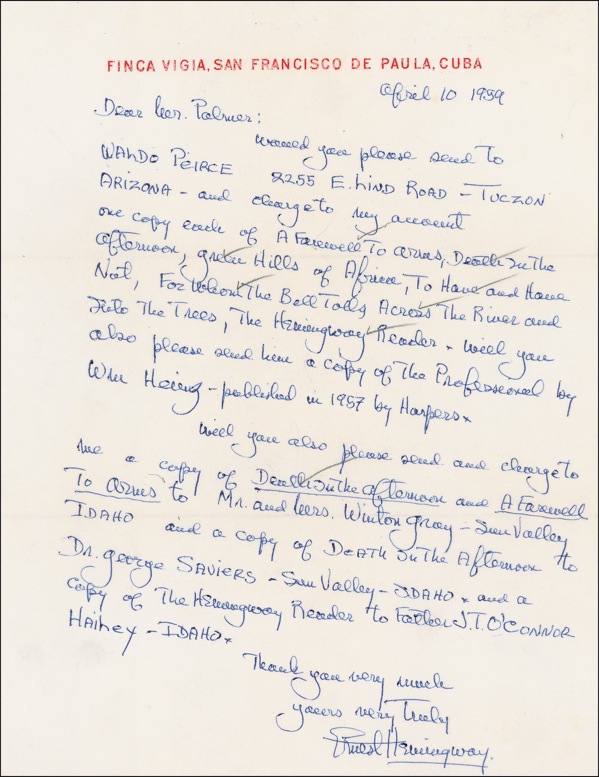 FINCA VIGIA, SAN FRANCISCO DE PAULA, CUBA
April 10 1959
Dear Mr. Palmer:
Would you please send to
WALDO PEIRCE 8255 E. LIND ROAD - TUCZON
ARIZONA - and charge to my account
one copy each of A Farewell To Arms, Death In The
Afternoon, Green Hills of Africa, To Have and Have
Not, For Whom The Bell Tolls Across The River and
Into The Trees, The Hemingway Reader. Will you
also please send him a copy of The Professional by
Wm Heinz - published in 1957 by Harpers x
Will you also please send and charge to
me a copy of Death In The Afternoon and A Farewell
To Arms to Mr. and Mrs. Winton Gray - Sun Valley
IDAHO and a copy of Death In The Afternoon to
Dr. George SAVIERS - Sun Valley - IDAHO x and a
copy of The Hemingway Reader to Father J.T. O'CONNOR
Hailey - IDAHO x
Thank you very much
yours very Truly
Ernest Hemingway.